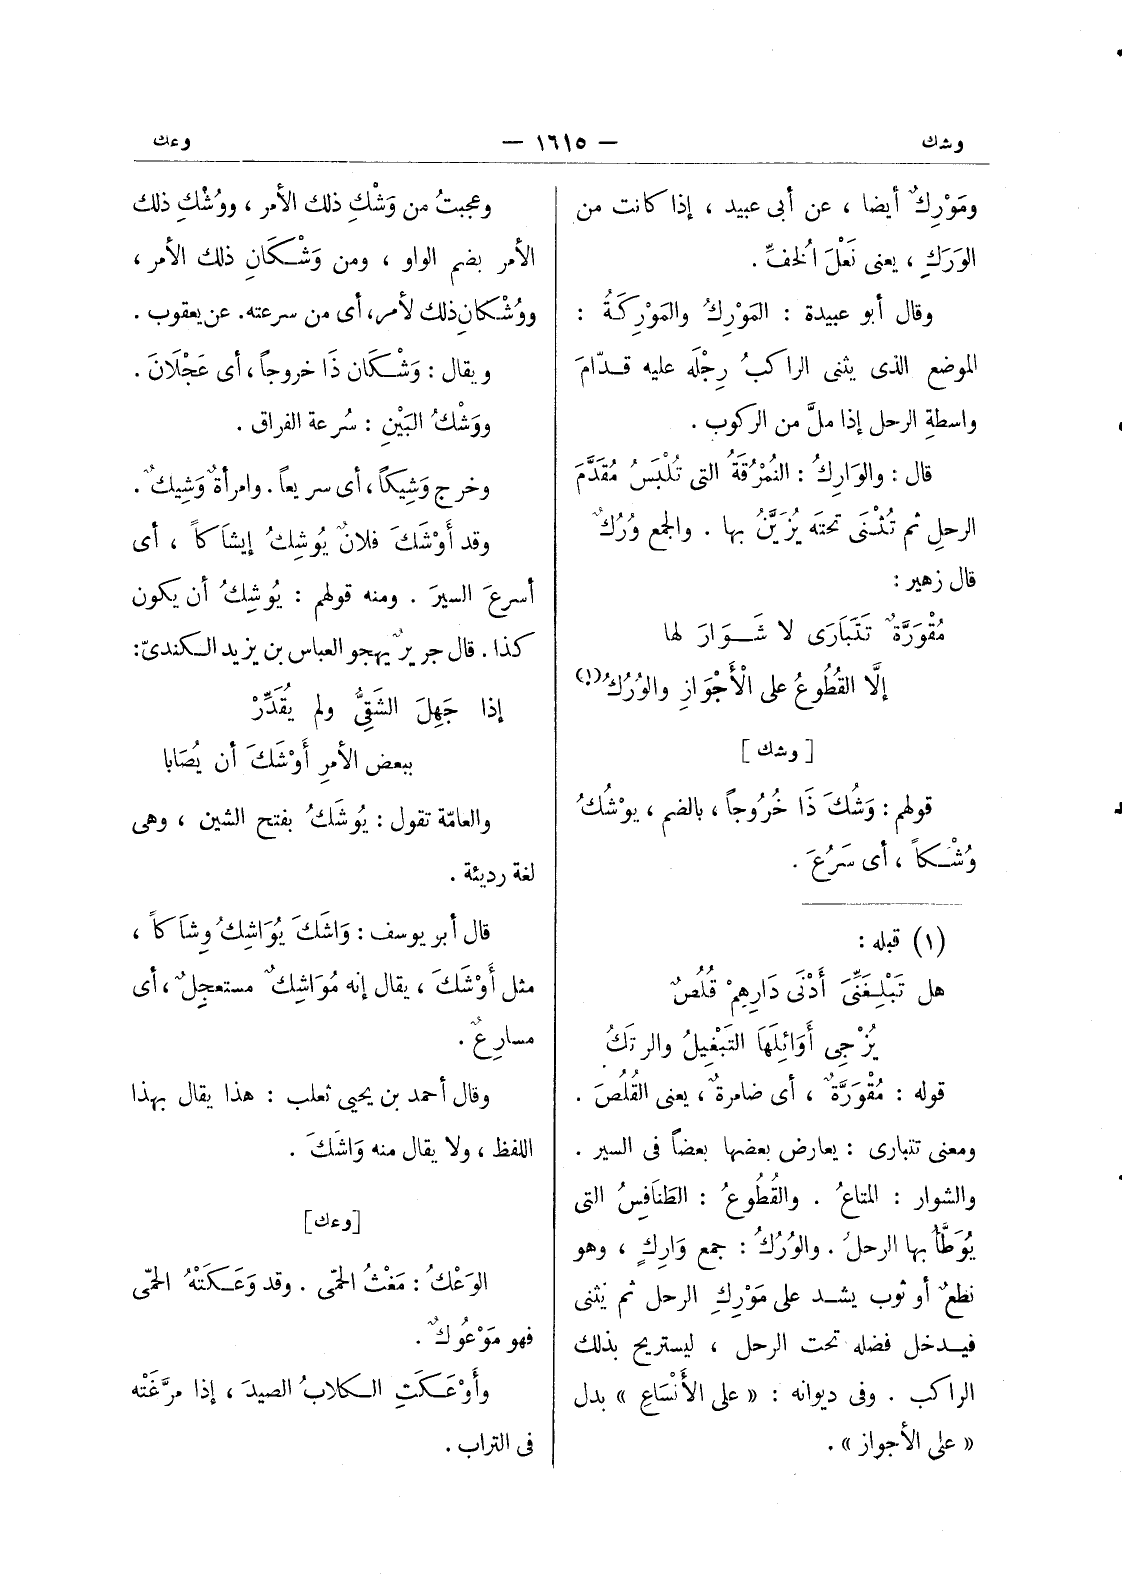 وشك
— ١٦١٥ —
وعك
ومَوْرِكٌ أيضا ، عن أبى عبيد ، إذا كانت من
الوَرَكِ ، يعنى نَعْلَ الخفِّ .
وقال أبو عبيدة : المَوْرِكُ والمَوْرِكَةُ :
الموضع الذى يثنى الراكبُ رِجْلَه عليه قدّامَ
واسطةِ الرحل إذا ملَّ من الركوب .
قال : والوَارِكُ : النُمْرُقَةُ التى تُلْبَسُ مُقَدَّمَ
الرحلِ ثم تُثْنَى تحتَه يُزَيَّنُ بها . والجمع وُرُكٌ
قال زهير :
مُقْوَرَّةٌ تَتَبَارَى لا شَوَارَ لها
إلَّا القُطُوعُ على الْأَجْوَازِ والوُرُكُ(١)
[ وشك ]
قولهم : وَشُكَ ذَا خُرُوجاً ، بالضم ، يوْشُكُ
وُشْكاً ، أى سَرُعَ .
(١) قبله :
هل تَبْلِغَنِّىَ أَدْنَى دَارِهِمْ قُلُصٌ
يُزْجِى أَوَائِلَهَا التَبْغِيلُ والرتَكُ
قوله : مُقْوَرَّةٌ ، أى ضامرةٌ ، يعنى القُلُصَ .
ومعنى تتبارى : يعارض بعضها بعضاً فى السير .
والشوار : المتاعُ . والقُطُوعُ : الطَنَافِسُ التى
يُوَطَّأُ بها الرحلُ . والوُرُكُ : جمع وَارِكٍ ، وهو
نطعٌ أو ثوب يشد على مَوْرِكِ الرحل ثم يُثنى
فيدخل فضله تحت الرحل ، ليستريح بذلك
الراكب . وفى ديوانه : « على الأَنْسَاعِ » بدل
« على الأجواز » .
وعجبتُ من وَشْكِ ذلك الأمر ، ووُشْكِ ذلك
الأمر بضم الواو ، ومن وَشْكَانِ ذلك الأمر ،
ووُشْكانِ ذلك لأمر، أى من سرعته. عن يعقوب .
ويقال : وَشْكَان ذَا خروجاً ، أى عَجْلَانَ .
ووَشْكُ البَيْنِ : سُرعة الفراق .
وخرج وَشِيكاً ، أى سريعاً . وامرأةٌ وَشِيكٌ .
وقد أَوْشَكَ فلانٌ يُوشِكُ إيشَاكاً ، أى
أسرعَ السيرَ . ومنه قولهم : يُوشِكُ أن يكون
كذا . قال جريرٌ يهجو العباس بن يزيد الكندىّ:
إذا جَهِلَ الشَقِىُّ ولم يُقَدِّرْ
ببعض الأمرِ أَوْشَكَ أن يُصَابا
والعامّة تقول : يُوشَكُ بفتح الشين ، وهى
لغة رديئة .
قال أبر يوسف : وَاشَكَ يُوَاشِكُ وِشَاكاً ،
مثل أَوْشَكَ ، يقال إنه مُوَاشِكٌ مستعجِلٌ ، أى
مسارِعٌ .
وقال أحمد بن يحيى ثعلب : هذا يقال بهذا
اللفظ ، ولا يقال منه وَاشَكَ .
[وعك]
الوَعْكُ : مَغْثُ الحمّى . وقد وَعَكَتْهُ الحمّى
فهو مَوْعُوكٌ .
وأَوْعَكَتِ الكلابُ الصيدَ ، إذا مرَّغَتْه
فى التراب .